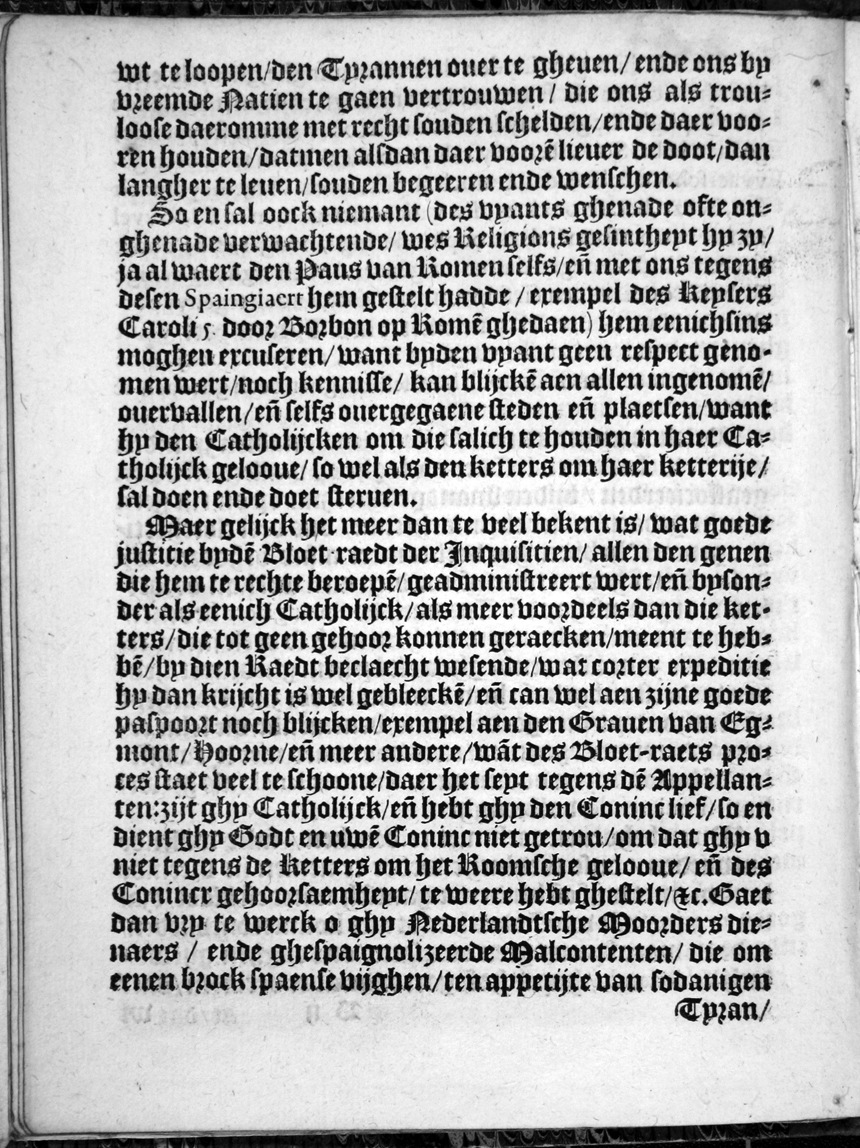 wt te loopen/den Tyrannen ouer te gheuen/ ende ons by
vreemde Natien te gaen vertrouwen / die ons als trou⸗
loose daeromme met recht souden schelden/ende daer voo⸗
ren houden/datmen alsdan daer voorē lieuer de doot/dan
langher te leuen/souden begeeren ende wenschen.
So en sal oock niemant (des vyants ghenade ofte on⸗
ghenade verwachtende/ wes Religions gesintheyt hy zy/
ja al waert den Paus van Romen selfs/eñ met ons tegens
desen Spaingiaert hem gestelt hadde / exempel des Keysers
Caroli 5. door Borbon op Romē ghedaen) hem eenichsins
moghen excuseren/want byden vyant geen respect geno⸗
men wert/noch kennisse/ kan blijckē aen allen ingenomē/
ouervallen/eñ selfs ouergegaene steden eñ plaetsen/want
hy den Catholijcken om die salich te houden in haer Ca⸗
tholijck gelooue/ so wel als den ketters om haer ketterije/
sal doen ende doet steruen.
Maer gelijck het meer dan te veel bekent is/ wat goede
justitie bydē Bloet raedt der Inquisitien/ allen den genen
die hem te rechte beroepē/geadministreert wert/eñ byson⸗
der als eenich Catholijck/als meer voordeels dan die ket⸗
ters/die tot geen gehoor konnen geraecken/meent te heb⸗
bē/by dien Raedt beclaecht wesende/wat corter expeditie
hy dan krijcht is wel gebleeckē/eñ can wel aen zijne goede
paspoort noch blijcken/exempel aen den Grauen van Eg⸗
mont/Hoorne/eñ meer andere/wāt des Bloet-raets pro⸗
ces staet veel te schoone/daer het seyt tegens dē Appellan⸗
ten:zijt ghy Catholijck/eñ hebt ghy den Coninc lief/so en
dient ghy Godt en uwē Coninc niet getrou/om dat ghy v
niet tegens de Ketters om het Roomsche gelooue/ eñ des
Conincx gehoorsaemheyt/ te weere hebt ghestelt/&c. Gaet
dan vry te werck o ghy Nederlandtsche Moorders die⸗
naers / ende ghespaignolizeerde Malcontenten/ die om
eenen brock spaense vijghen/ten appetijte van sodanigen
Tyran/